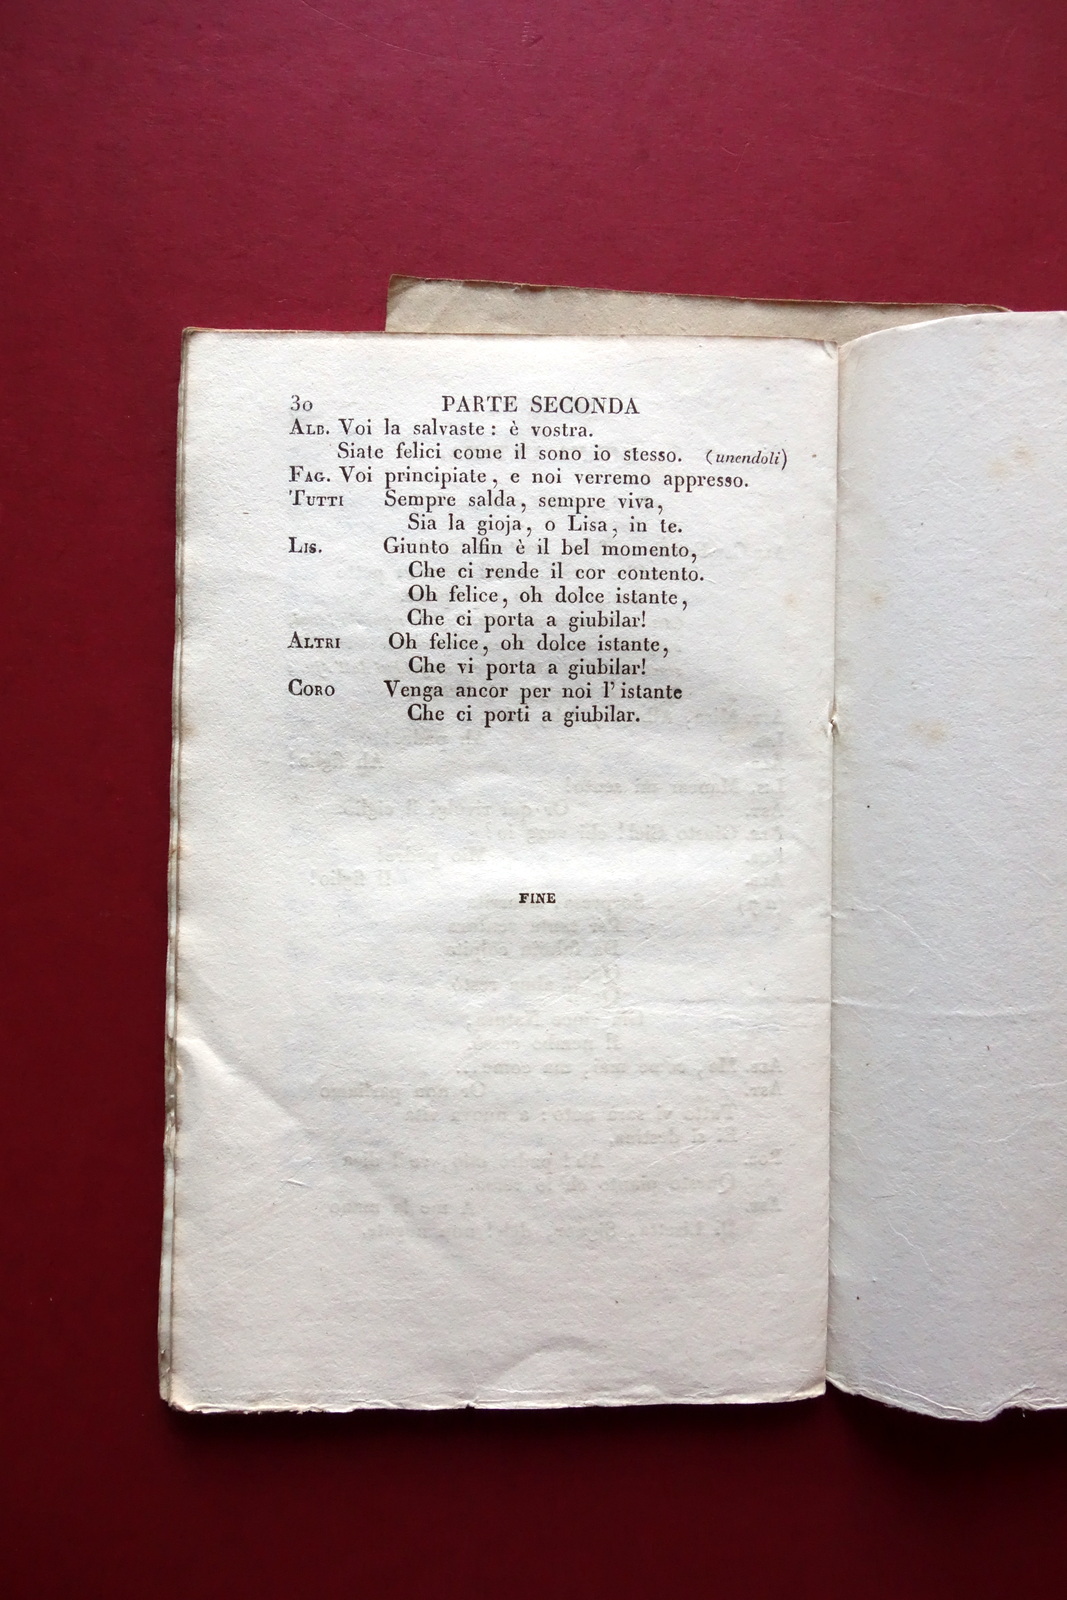 30 PARTE SECONDA
ALB. Voi la salvaste : è vostra.
Siate felici come il sono io stesso. (unendoli)
FAG. Voi principiate, e noi verremo appresso.
TUTTI Sempre salda, sempre viva,
Sia la gioja, o Lisa, in te.
LIS. Giunto alfin è il bel momento,
Che ci rende il cor contento.
Oh felice, oh dolce istante,
Che ci porta a giubilar!
ALTRI Oh felice, oh dolce istante,
Che vi porta a giubilar!
CORO Venga ancor per noi l' istante
Che ci porti a giubilar.
FINE